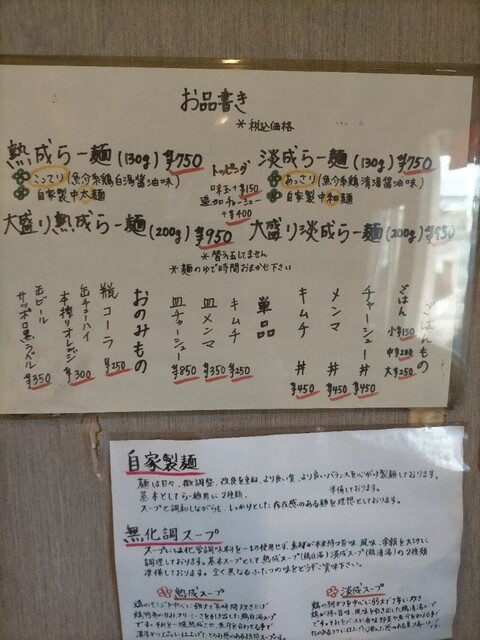 お品書き
＊税込価格
熟成らー麺(130g) ¥750
こってり(魚介系鶏白湯醤油味)
自家製中太麺
トッピング
味玉+¥150
追加チャーシュー
+¥400
淡成らー麺(130g) ¥750
あっさり(魚介系鶏清湯醤油味)
自家製中細麺
大盛り熟成らー麺(200g) ¥950
大盛り淡成らー麺(200g) ¥950
＊替え玉しません
＊麺のゆで時間おまかせ下さい
ごはんもの
ごはん 小¥150
中¥200
大¥250
チャーシュー丼 ¥450
メンマ丼 ¥450
キムチ丼 ¥450
単品
キムチ ¥250
皿メンマ ¥350
皿チャーシュー ¥850
おのみもの
瓶コーラ ¥250
缶チューハイ
本搾りオレンジ ¥300
缶ビール
サッポロ黒ラベル ¥350
自家製麺
麺は日々、微調整、改良を重ね、より良い質、より良いバランスを心がけ製麺しております。
基本としてらー麺用に2種類、準備しております。
スープと調和しながらも、しっかりとした存在感のある麺を理想としております。
無化調スープ
スープには化学調味料を一切使用せず、素材が本来持つ旨味、風味、余韻を大切に
調理しております。基本スープとして熟成スープ(鶏白湯)淡成スープ(鶏清湯)の2種類
準備しております。全く異なるふたつの味をどうぞご賞味下さい。
熟成スープ
淡成スープ